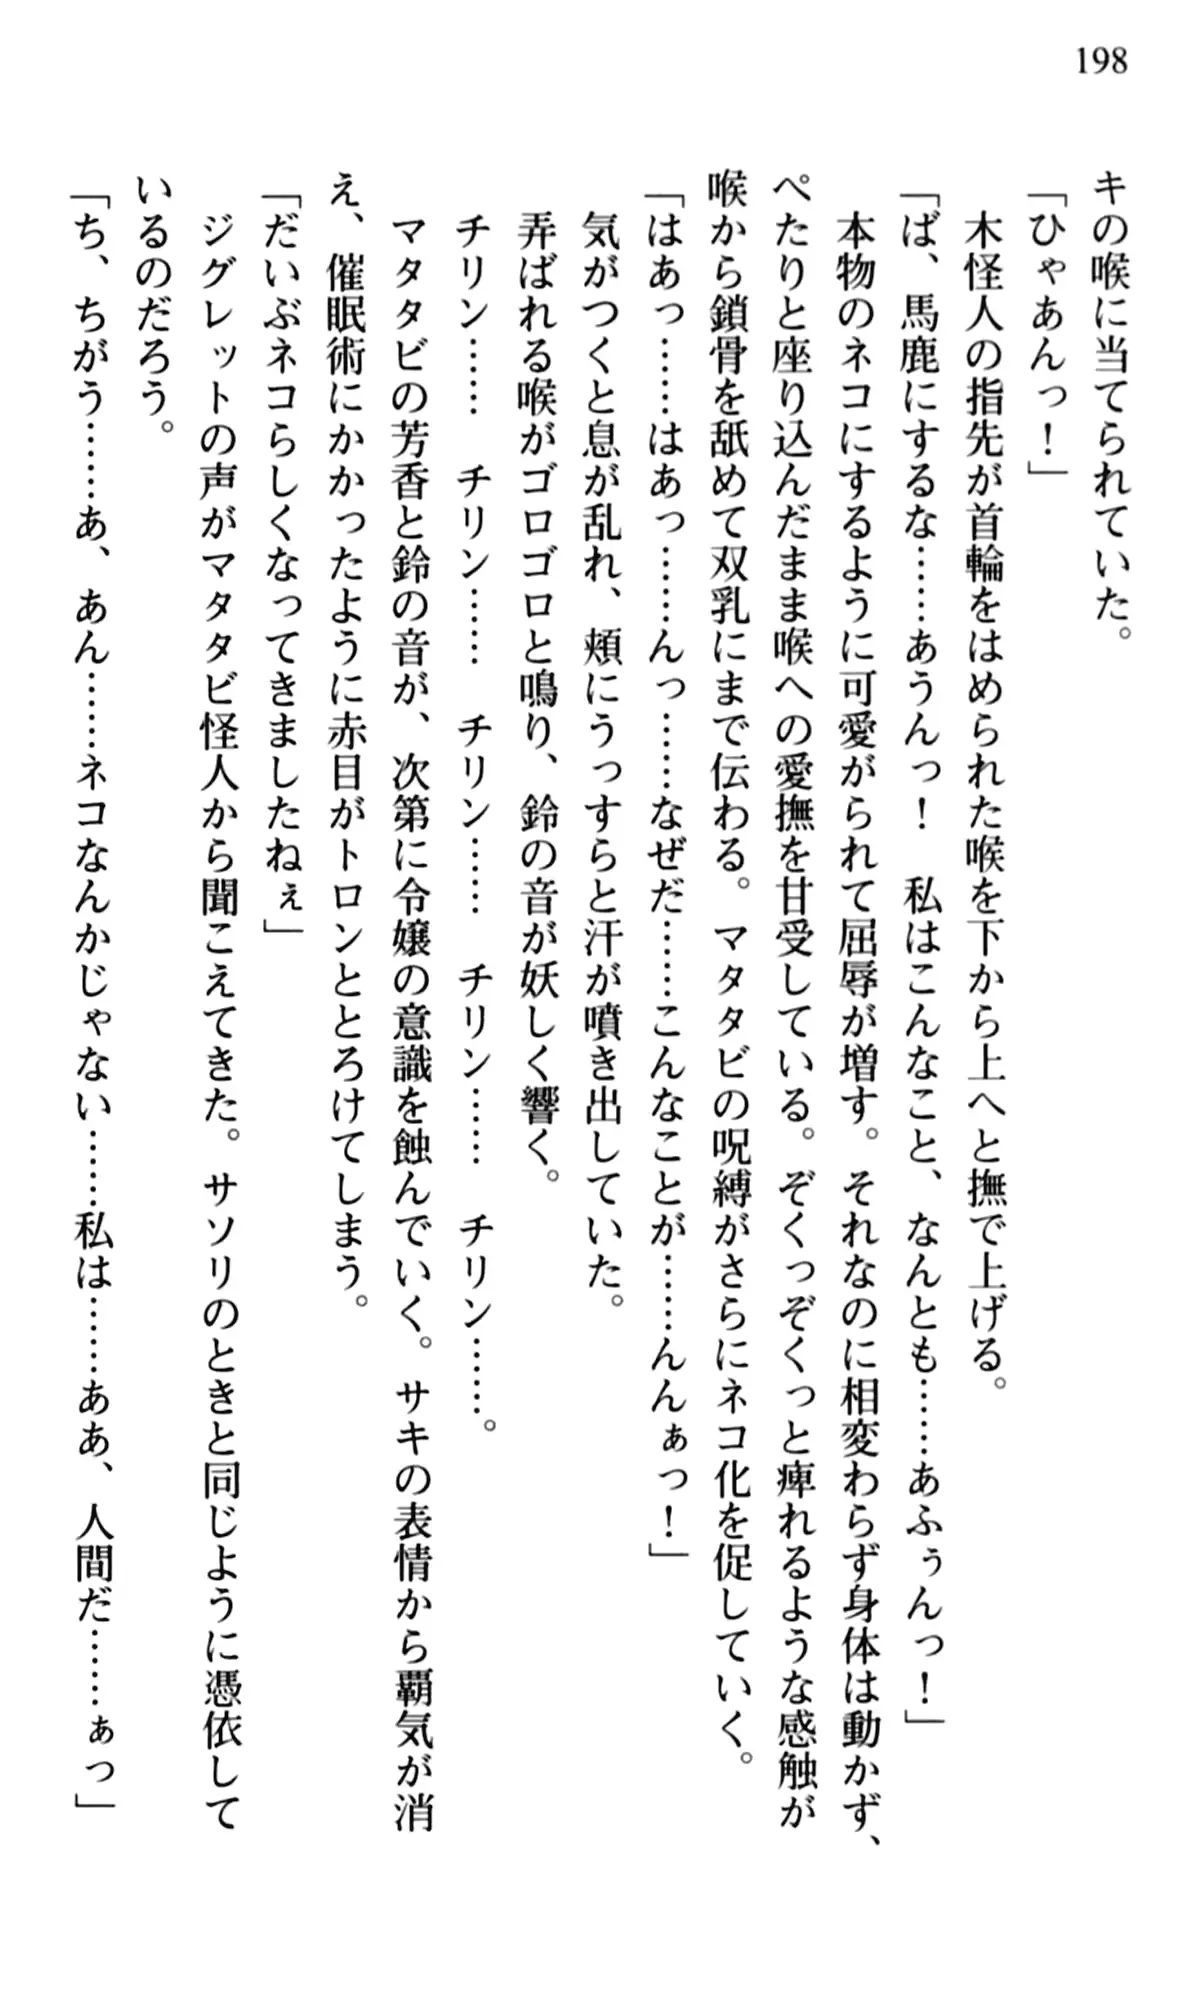 198
キの喉に当てられていた。
「ひゃあんっ！」
木怪人の指先が首輪をはめられた喉を下から上へと撫で上げる。
「ば、馬鹿にするな……あうんっ！　私はこんなこと、なんとも……あふぅんっ！」
本物のネコにするように可愛がられて屈辱が増す。それなのに相変わらず身体は動かず、
ぺたりと座り込んだまま喉への愛撫を甘受している。ぞくっぞくっと痺れるような感触が
喉から鎖骨を舐めて双乳にまで伝わる。マタタビの呪縛がさらにネコ化を促していく。
「はあっ……はあっ……んっ……なぜだ……こんなことが……んんぁっ！」
気がつくと息が乱れ、頬にうっすらと汗が噴き出していた。
弄ばれる喉がゴロゴロと鳴り、鈴の音が妖しく響く。
チリン……　チリン……　チリン……　チリン……　チリン……。
マタタビの芳香と鈴の音が、次第に令嬢の意識を蝕んでいく。サキの表情から覇気が消
え、催眠術にかかったように赤目がトロンととろけてしまう。
「だいぶネコらしくなってきましたねぇ」
ジグレットの声がマタタビ怪人から聞こえてきた。サソリのときと同じように憑依して
いるのだろう。
「ち、ちがう……あ、あん……ネコなんかじゃない……私は……ああ、人間だ……ぁっ」